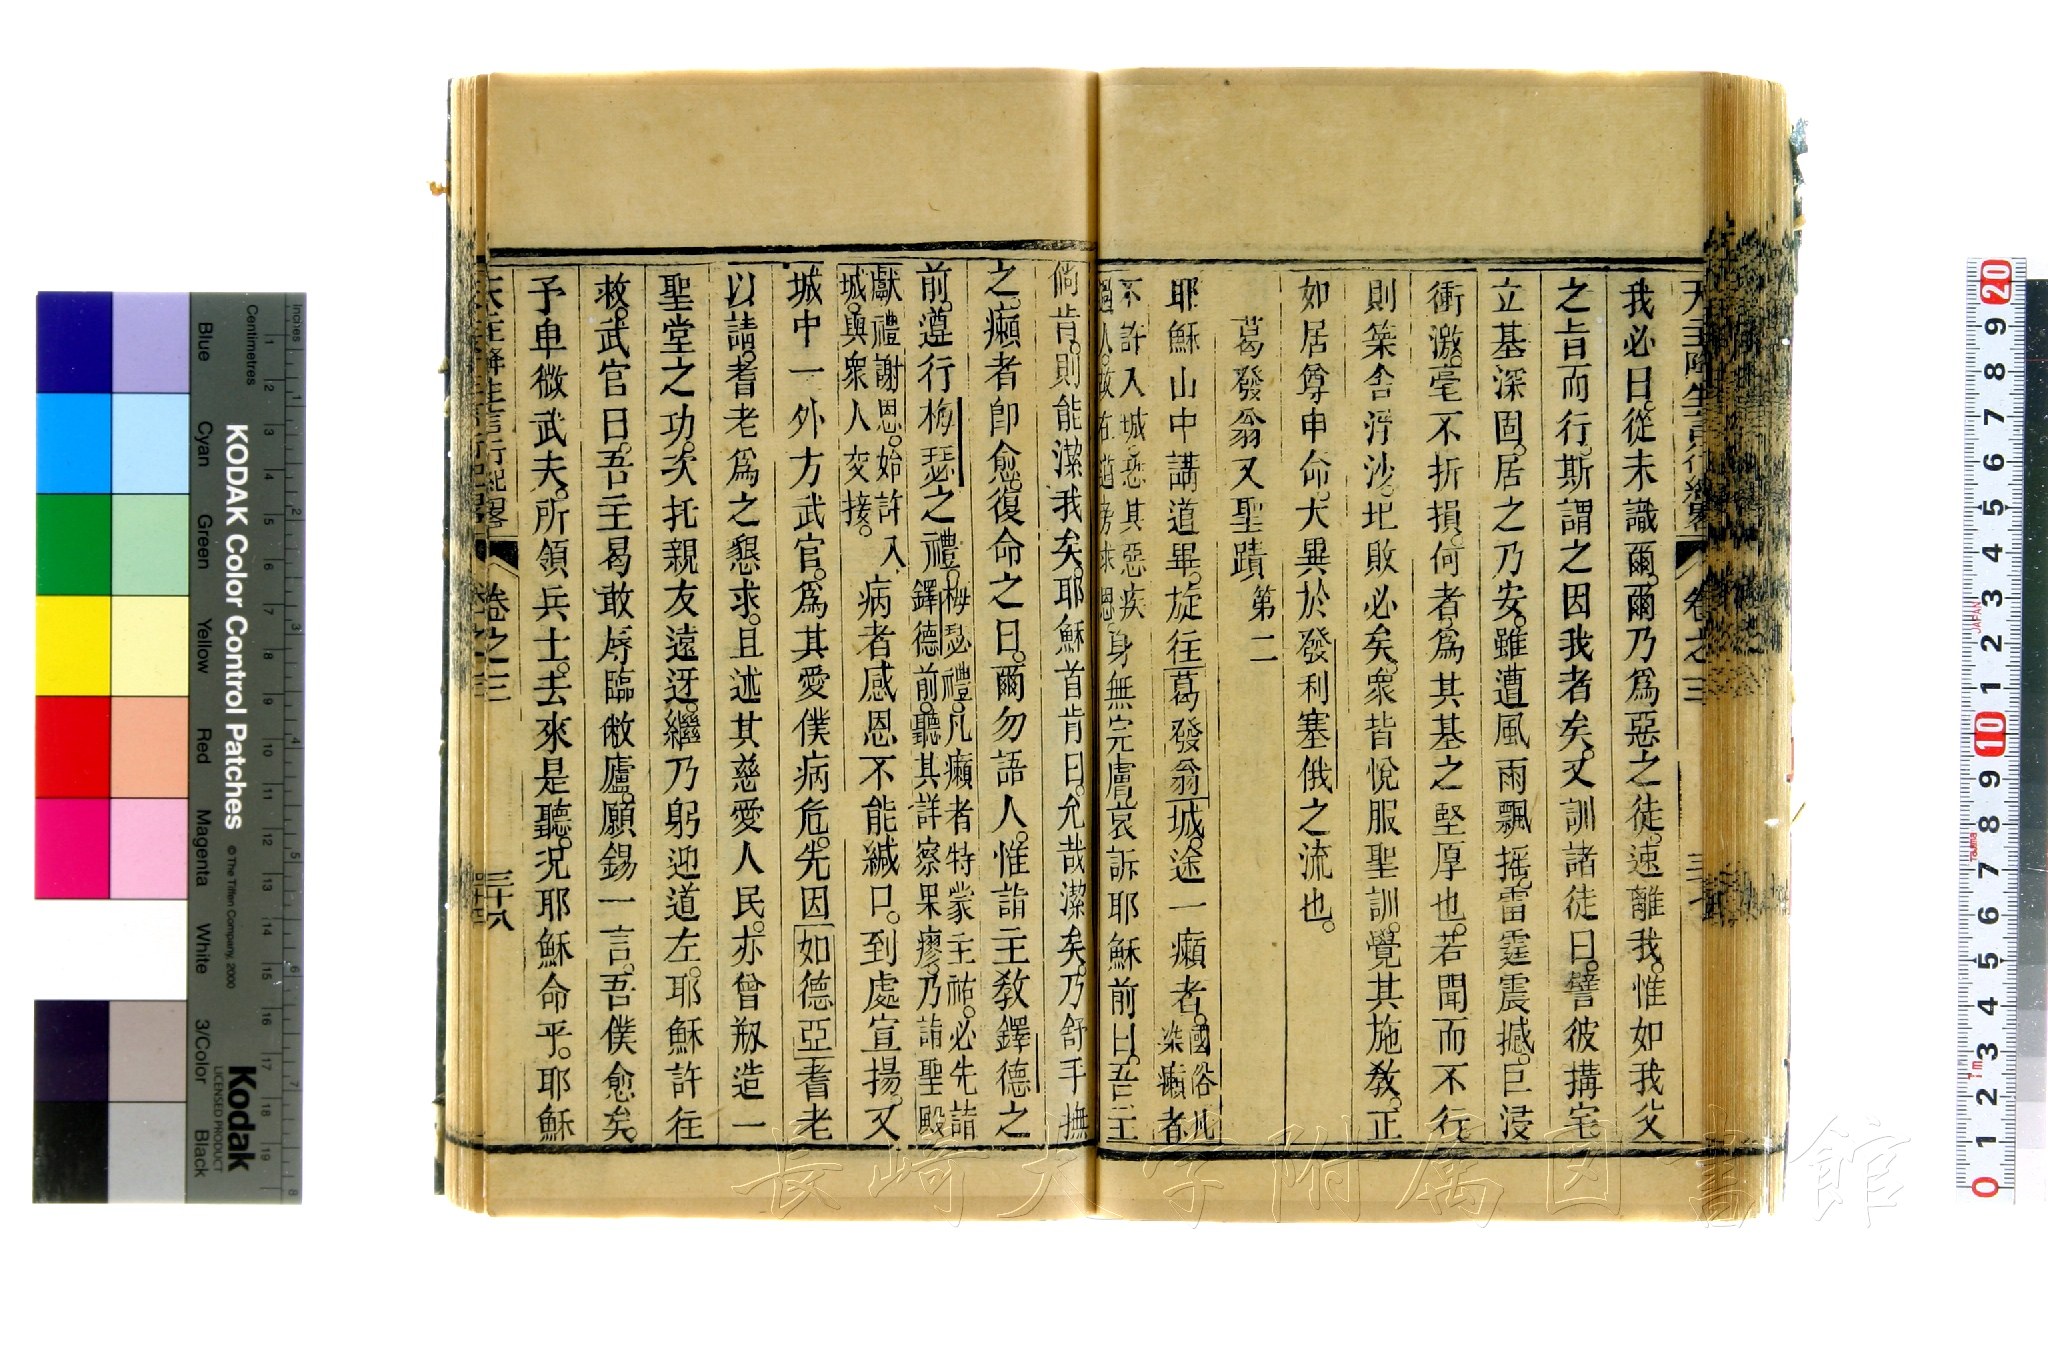 天主降生言行紀畧 卷之三
我必曰。從未識爾。爾乃爲惡之徒。速離我。惟如我父
之旨而行。斯謂之因我者矣。又訓諸徒曰。譬彼搆宅
立基深固。居之乃安。雖遭風雨飄搖。雷霆震撼。巨浸
衝激。毫不折損。何者。爲其基之堅厚也。若聞而不行
則築舍浮沙。圯敗必矣。衆皆悅服聖訓。覺其施敎。正
如居尊申命。大異於發利塞俄之流也。
葛發翁又聖蹟 第二
耶穌山中講道畢。旋往葛發翁城。途一癩者。國俗凡染癩者
不許入城。恐其惡疾過人。故在道旁求恩。身無完膚。哀訴耶穌前曰。吾主
倘肯。則能潔我矣。耶穌首肯曰。允哉潔矣。乃舒手撫
之。癩者卽愈。復命之曰。爾勿語人。惟詣主敎鐸德之
前。遵行梅瑟之禮。梅瑟禮。凡癩者特蒙主祐。必先詣鐸德前。聽其詳察果瘳。乃詣聖殿
獻禮謝恩。始許入城。與衆人交接。病者感恩不能緘口。到處宣揚。又
城中一外方武官。爲其愛僕病危。先因如德亞耆老
以請。耆老爲之懇求。且述其慈愛人民。亦曾剏造一
聖堂之功。次托親友遠迓。繼乃躬迎道左。耶穌許往
救。武官曰。吾主曷敢辱臨敝廬。願錫一言。吾僕愈矣。
予卑微武夫。所領兵士。去來是聽。况耶穌命乎。耶穌
天主降生言行紀畧 卷之三 三十八
KODAK Color Control Patches
© The Tiffen Company, 2000
Kodak
LICENSED PRODUCT
Inches
Centimetres
Blue Cyan Green Yellow Red Magenta White 3/Color Black
JAPAN
長崎大学附属図書館